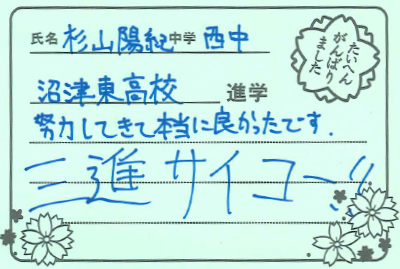 氏名 杉山陽紀 中学 西中
たいへん
がんばり
ました
沼津東高校 進学
努力してきて本当に良かったです.
三進 サイコー!!